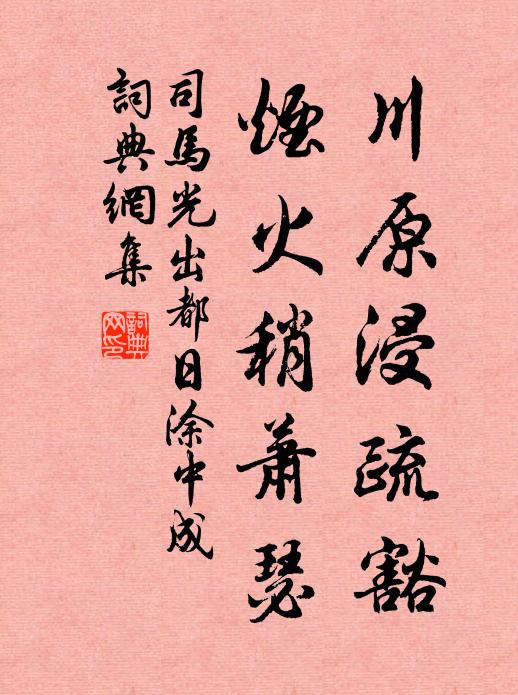 川原浸疏豁
煙火稍蕭瑟
司馬光出都日涂中成
詞典網集
詞典网印